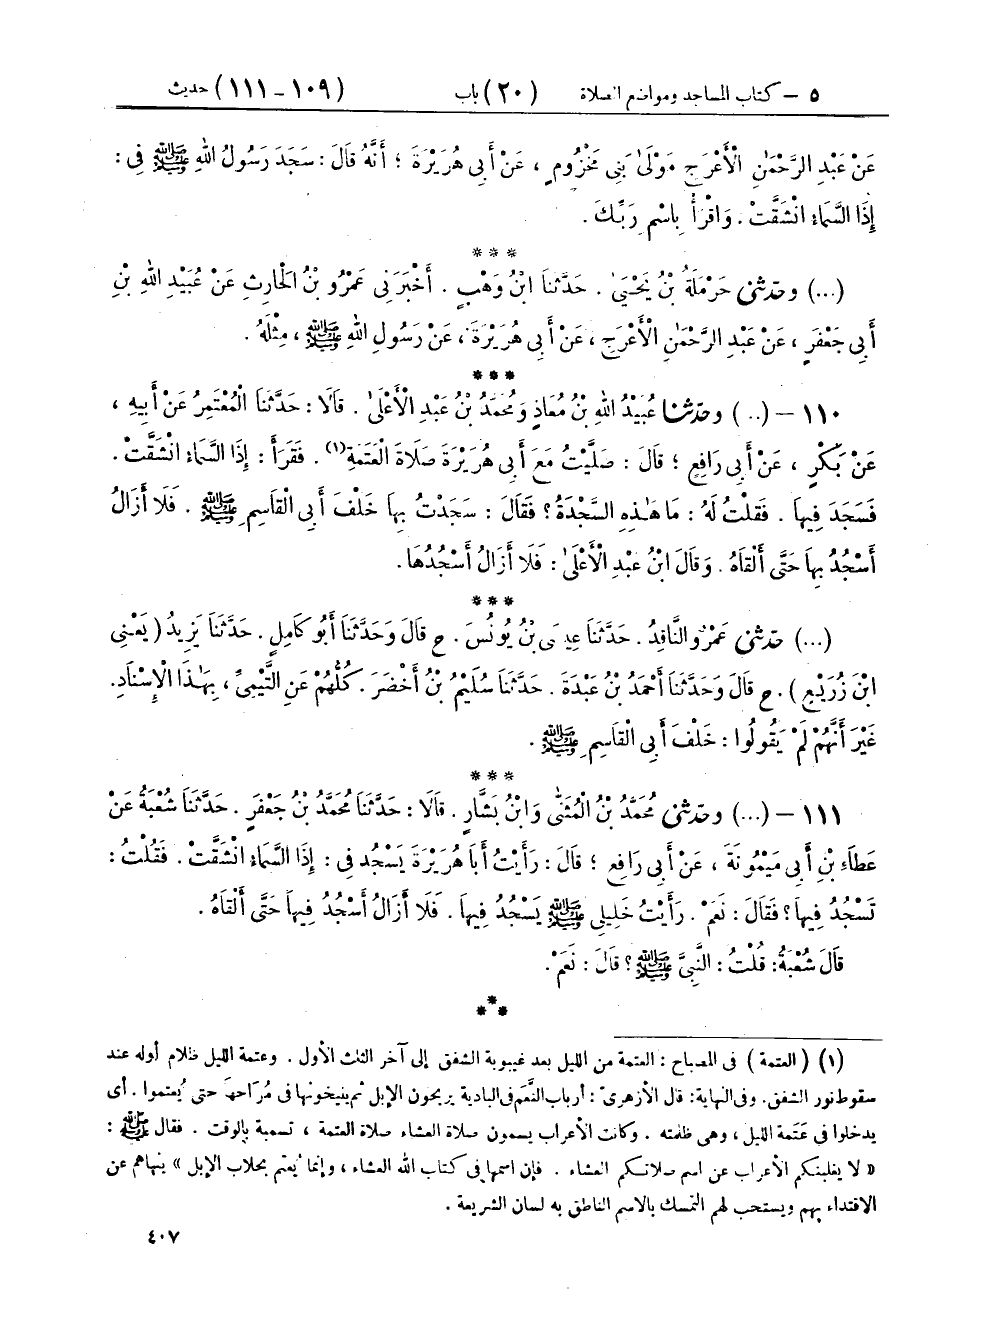 ٥ – كتاب المساجد ومواضع الصلاة (٢٠) باب (١٠٩ – ١١١) حديث
عَنْ عَبْدِ الرَّحْمٰنِ الْأَعْرَجِ مَوْلَىٰ بَنِي مَخْزُومٍ ، عَنْ أَبِي هُرَيْرَةَ ؛ أَنَّهُ قَالَ : سَجَدَ رَسُولُ اللهِ ﷺ فِي :
إِذَا السَّمَاءُ انْشَقَّتْ . وَاقْرَأْ بِاسْمِ رَبِّكَ .
***
(...) وحَدَّثَنِي حَرْمَلَةُ بْنُ يَحْيَىٰ . حَدَّثَنَا ابْنُ وَهْبٍ . أَخْبَرَنِي عَمْرُو بْنُ الْحَارِثِ عَنْ عُبَيْدِ اللهِ بْنِ
أَبِي جَعْفَرٍ ، عَنْ عَبْدِ الرَّحْمٰنِ الْأَعْرَجِ ، عَنْ أَبِي هُرَيْرَةَ ، عَنْ رَسُولِ اللهِ ﷺ ، مِثْلَهُ .
***
١١٠ – (...) وحَدَّثَنَا عُبَيْدُ اللهِ بْنُ مُعَاذٍ وَمُحَمَّدُ بْنُ عَبْدِ الْأَعْلَىٰ . قَالَا : حَدَّثَنَا الْمُعْتَمِرُ عَنْ أَبِيهِ ،
عَنْ بَكْرٍ ، عَنْ أَبِي رَافِعٍ ؛ قَالَ : صَلَّيْتُ مَعَ أَبِي هُرَيْرَةَ صَلَاةَ الْعَتَمَةِ(١) . فَقَرَأَ : إِذَا السَّمَاءُ انْشَقَّتْ .
فَسَجَدَ فِيهَا . فَقُلْتُ لَهُ : مَا هٰذِهِ السَّجْدَةُ ؟ فَقَالَ : سَجَدْتُ بِهَا خَلْفَ أَبِي الْقَاسِمِ ﷺ . فَلَا أَزَالُ
أَسْجُدُ بِهَا حَتَّى أَلْقَاهُ . وَقَالَ ابْنُ عَبْدِ الْأَعْلَىٰ : فَلَا أَزَالُ أَسْجُدُهَا .
***
(...) حَدَّثَنِي عَمْرٌو النَّاقِدُ . حَدَّثَنَا عِيسَى بْنُ يُونُسَ . ح قَالَ وَحَدَّثَنَا أَبُو كَامِلٍ . حَدَّثَنَا يَزِيدُ ( يَعْنِي
ابْنَ زُرَيْعٍ ) . ح قَالَ وَحَدَّثَنَا أَحْمَدُ بْنُ عَبْدَةَ . حَدَّثَنَا سُلَيْمُ بْنُ أَخْضَرَ . كُلُّهُمْ عَنِ التَّيْمِيِّ ، بِهٰذَا الْإِسْنَادِ .
غَيْرَ أَنَّهُمْ لَمْ يَقُولُوا : خَلْفَ أَبِي الْقَاسِمِ ﷺ .
***
١١١ – (...) وحَدَّثَنِي مُحَمَّدُ بْنُ الْمُثَنَّى وَابْنُ بَشَّارٍ . قَالَا : حَدَّثَنَا مُحَمَّدُ بْنُ جَعْفَرٍ . حَدَّثَنَا شُعْبَةُ عَنْ
عَطَاءِ بْنِ أَبِي مَيْمُونَةَ ، عَنْ أَبِي رَافِعٍ ؛ قَالَ : رَأَيْتُ أَبَا هُرَيْرَةَ يَسْجُدُ فِي : إِذَا السَّمَاءُ انْشَقَّتْ . فَقُلْتُ :
تَسْجُدُ فِيهَا ؟ فَقَالَ : نَعَمْ . رَأَيْتُ خَلِيلِي ﷺ يَسْجُدُ فِيهَا . فَلَا أَزَالُ أَسْجُدُ فِيهَا حَتَّى أَلْقَاهُ .
قَالَ شُعْبَةُ : قُلْتُ : النَّبِيَّ ﷺ ؟ قَالَ : نَعَمْ .
***
(١) ( العتمة ) فى المصباح : العتمة من الليل بعد غيبوبة الشفق إلى آخر الثلث الأول . وعتمة الليل ظلام أوله عند
سقوط نور الشفق . وفى النهاية : قال الأزهرى : أرباب النَّعَم فى البادية يريحون الإبل ثم ينيخونها فى مُرَاحها حتى يُعتموا . أى
يدخلوا فى عَتَمة الليل ، وهى ظلمته . وكانت الأعراب يسمون صلاة العشاء صلاة العتمة ، تسمية بالوقت . فقال ﷺ :
« لا يغلبنكم الأعراب عن اسم صلاتكم العشاء . فإن اسمها فى كتاب الله العشاء ، وإنما يُعتم بحلاب الإبل » ينهاهم عن
الاقتداء بهم ويستحب لهم التمسك بالاسم الناطق به لسان الشريعة .
٤٠٧